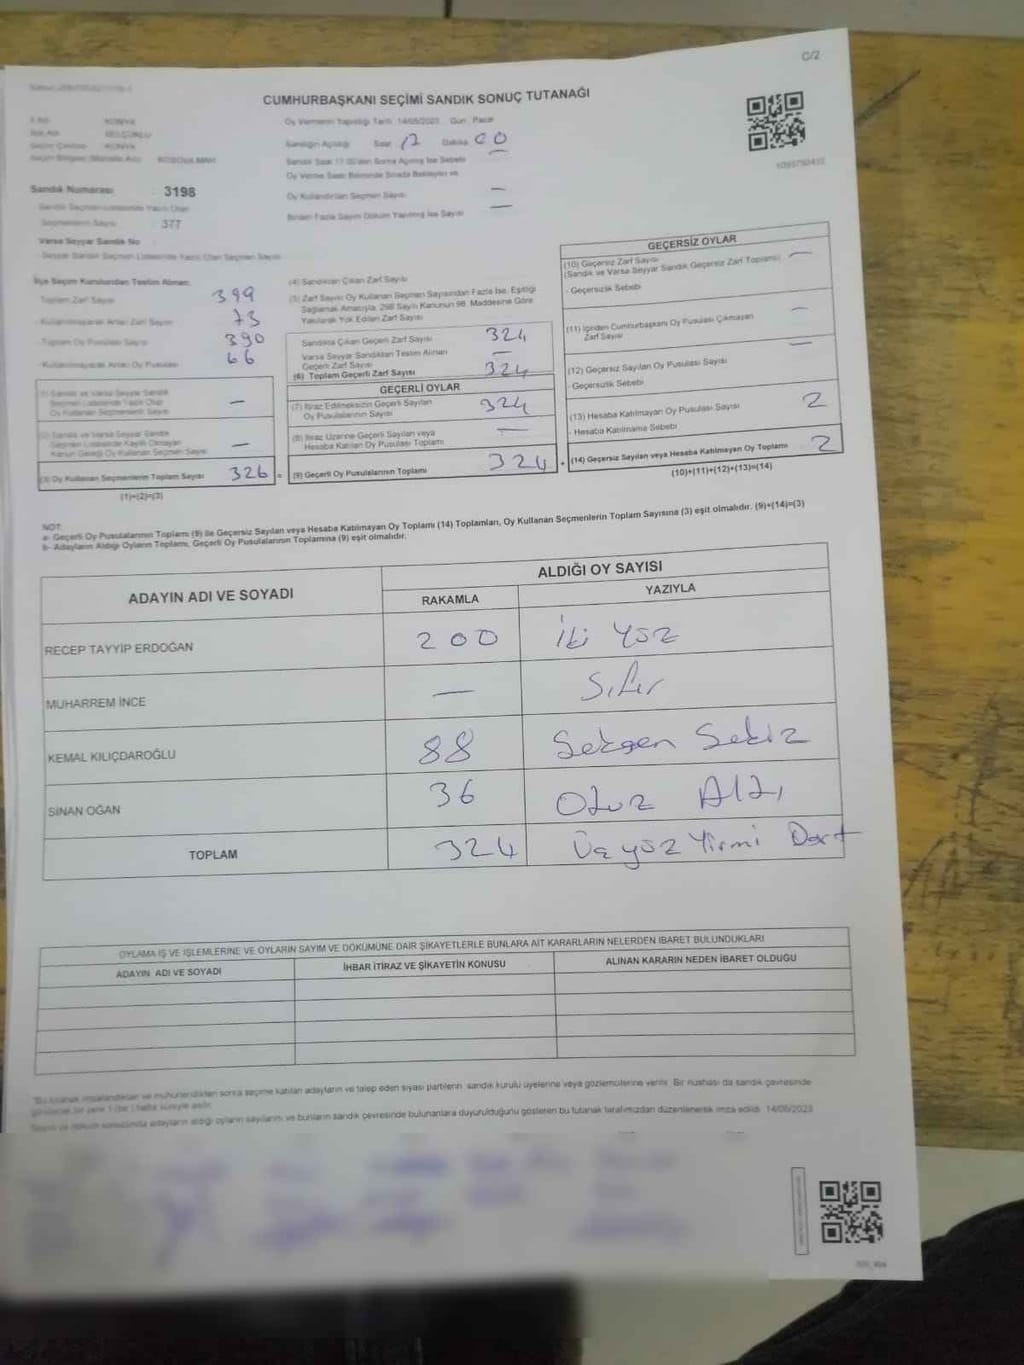 C/2
CUMHURBAŞKANI SEÇİMİ SANDIK SONUÇ TUTANAĞI
KONYA
SELÇUKLU
KONYA
KOSOVA MAH.
Oy Vermenin Yapıldığı Tarih: 14/05/2023 Gün: Pazar
Sandığın Açıldığı Saat 17 Dakika 00
Sandık Saat 17:00'den Sonra Açılmış İse Sebebi
Oy Kullandırılan Seçmen Sayısı —
Birden Fazla Sayım Döküm Yapılmış İse Sayısı —
Sandık Numarası : 3198
- Sandık Seçmen Listesinde Yazılı Olan
Seçmenlerin Sayısı : 377
Varsa Seyyar Sandık No
- Seyyar Sandık Seçmen Listesinde Yazılı Olan Seçmen Sayısı
İlçe Seçim Kurulundan Teslim Alınan;
Toplam Zarf Sayısı 399
- Kullanılmayarak Artan Zarf Sayısı 73
- Toplam Oy Pusulası Sayısı 390
- Kullanılmayarak Artan Oy Pusulası 66
(1) Sandık ve Varsa Seyyar Sandık
Seçmen Listesinde Yazılı Olup
Oy Kullanan Seçmenlerin Sayısı —
(2) Sandık ve Varsa Seyyar Sandık
Seçmen Listesinde Kayıtlı Olmayan
Kanun Gereği Oy Kullanan Seçmen Sayısı —
(3) Oy Kullanan Seçmenlerin Toplam Sayısı 326 =
(1)+(2)=(3)
(4) Sandıktan Çıkan Zarf Sayısı
(5) Zarf Sayısı Oy Kullanan Seçmen Sayısından Fazla İse, Eşitliği
Sağlamak Amacıyla, 298 Sayılı Kanunun 98. Maddesine Göre
Yakılarak Yok Edilen Zarf Sayısı
Sandıkta Çıkan Geçerli Zarf Sayısı 324
Varsa Seyyar Sandıktan Teslim Alınan
Geçerli Zarf Sayısı —
(6) Toplam Geçerli Zarf Sayısı 324
GEÇERLİ OYLAR
(7) İtiraz Edilmeksizin Geçerli Sayılan
Oy Pusulalarının Sayısı 324
(8) İtiraz Üzerine Geçerli Sayılan veya
Hesaba Katılan Oy Pusulası Toplamı —
(9) Geçerli Oy Pusulalarının Toplamı 324 +
GEÇERSİZ OYLAR
(10) Geçersiz Zarf Sayısı
(Sandık ve Varsa Seyyar Sandık Geçersiz Zarf Toplamı) —
- Geçersizlik Sebebi
(11) İçinden Cumhurbaşkanı Oy Pusulası Çıkmayan
Zarf Sayısı —
(12) Geçersiz Sayılan Oy Pusulası Sayısı —
- Geçersizlik Sebebi
(13) Hesaba Katılmayan Oy Pusulası Sayısı 2
- Hesaba Katılmama Sebebi
(14) Geçersiz Sayılan veya Hesaba Katılmayan Oy Toplamı 2
(10)+(11)+(12)+(13)=(14)
NOT:
a- Geçerli Oy Pusulalarının Toplamı (9) ile Geçersiz Sayılan veya Hesaba Katılmayan Oy Toplamı (14) Toplamları, Oy Kullanan Seçmenlerin Toplam Sayısına (3) eşit olmalıdır. (9)+(14)=(3)
b- Adayların Aldığı Oyların Toplamı, Geçerli Oy Pusulalarının Toplamına (9) eşit olmalıdır.
ADAYIN ADI VE SOYADI
ALDIĞI OY SAYISI
RAKAMLA YAZIYLA
RECEP TAYYİP ERDOĞAN 200 İki Yüz
MUHARREM İNCE — Sıfır
KEMAL KILIÇDAROĞLU 88 Seksen Sekiz
SİNAN OĞAN 36 Otuz Altı
TOPLAM 324 Üç yüz Yirmi Dört
OYLAMA İŞ VE İŞLEMLERİNE VE OYLARIN SAYIM VE DÖKÜMÜNE DAİR ŞİKAYETLERLE BUNLARA AİT KARARLARIN NELERDEN İBARET BULUNDUKLARI
ADAYIN ADI VE SOYADI İHBAR İTİRAZ VE ŞİKAYETİN KONUSU ALINAN KARARIN NEDEN İBARET OLDUĞU
Bu tutanak imzalandıktan ve mühürlendikten sonra seçime katılan adayların ve talep eden siyasi partilerin sandık kurulu üyelerine veya gözlemcilerine verilir. Bir nüshası da sandık çevresinde
görülecek bir yere 1 (bir) hafta süreyle asılır.
Sayım ve döküm sonucunda adayların aldığı oyların sayılarını ve bunların sandık çevresinde bulunanlara duyurulduğunu gösteren bu tutanak tarafımızdan düzenlenerek imza edildi. 14/05/2023